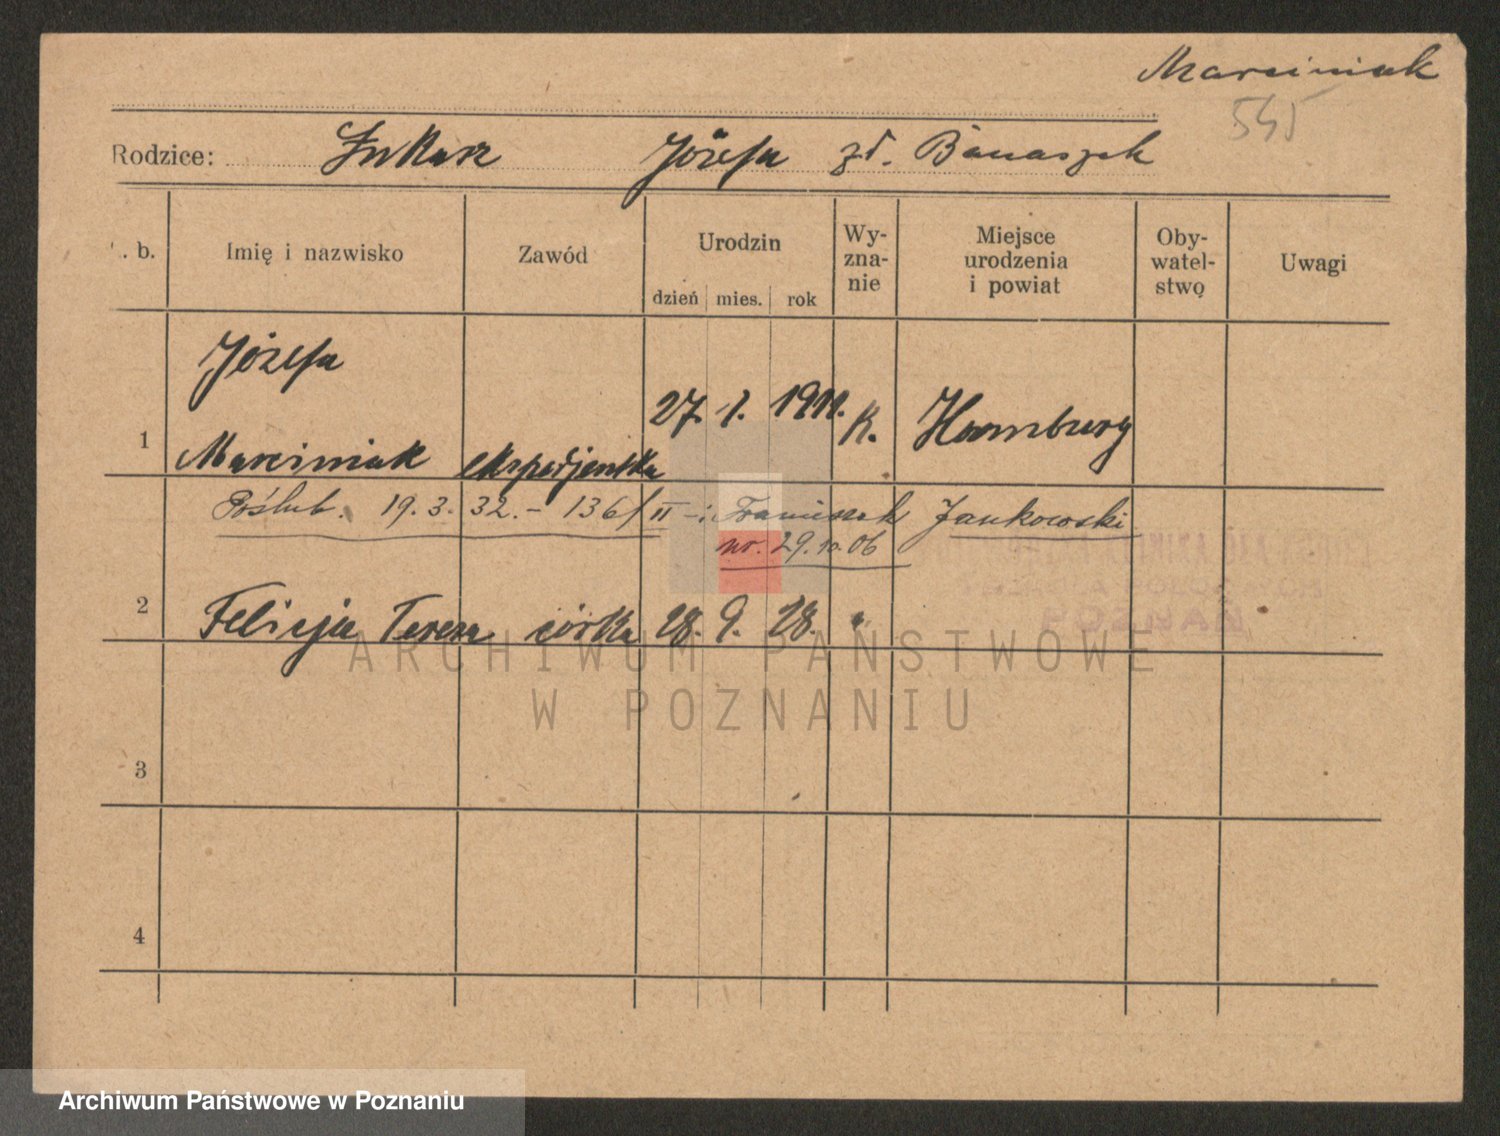 Marciniak
545
Rodzice: Łukasz Józefa zd. Banaszak
. b. Imię i nazwisko Zawód Urodzin dzień mies. rok Wy-zna-nie Miejsce urodzenia i powiat Oby-watel-stwo Uwagi
Józefa
1 Marciniak ekspedjentka 27. 1. 1911. K. Hamburg
Poślub. 19.3.32.- 136/II -: Franciszek Jankowski
ur. 29.10.06
2 Felicja Teresa córka 28. 9. 28. "
3
4
ARCHIWUM PAŃSTWOWE
W POZNANIU
Archiwum Państwowe w Poznaniu